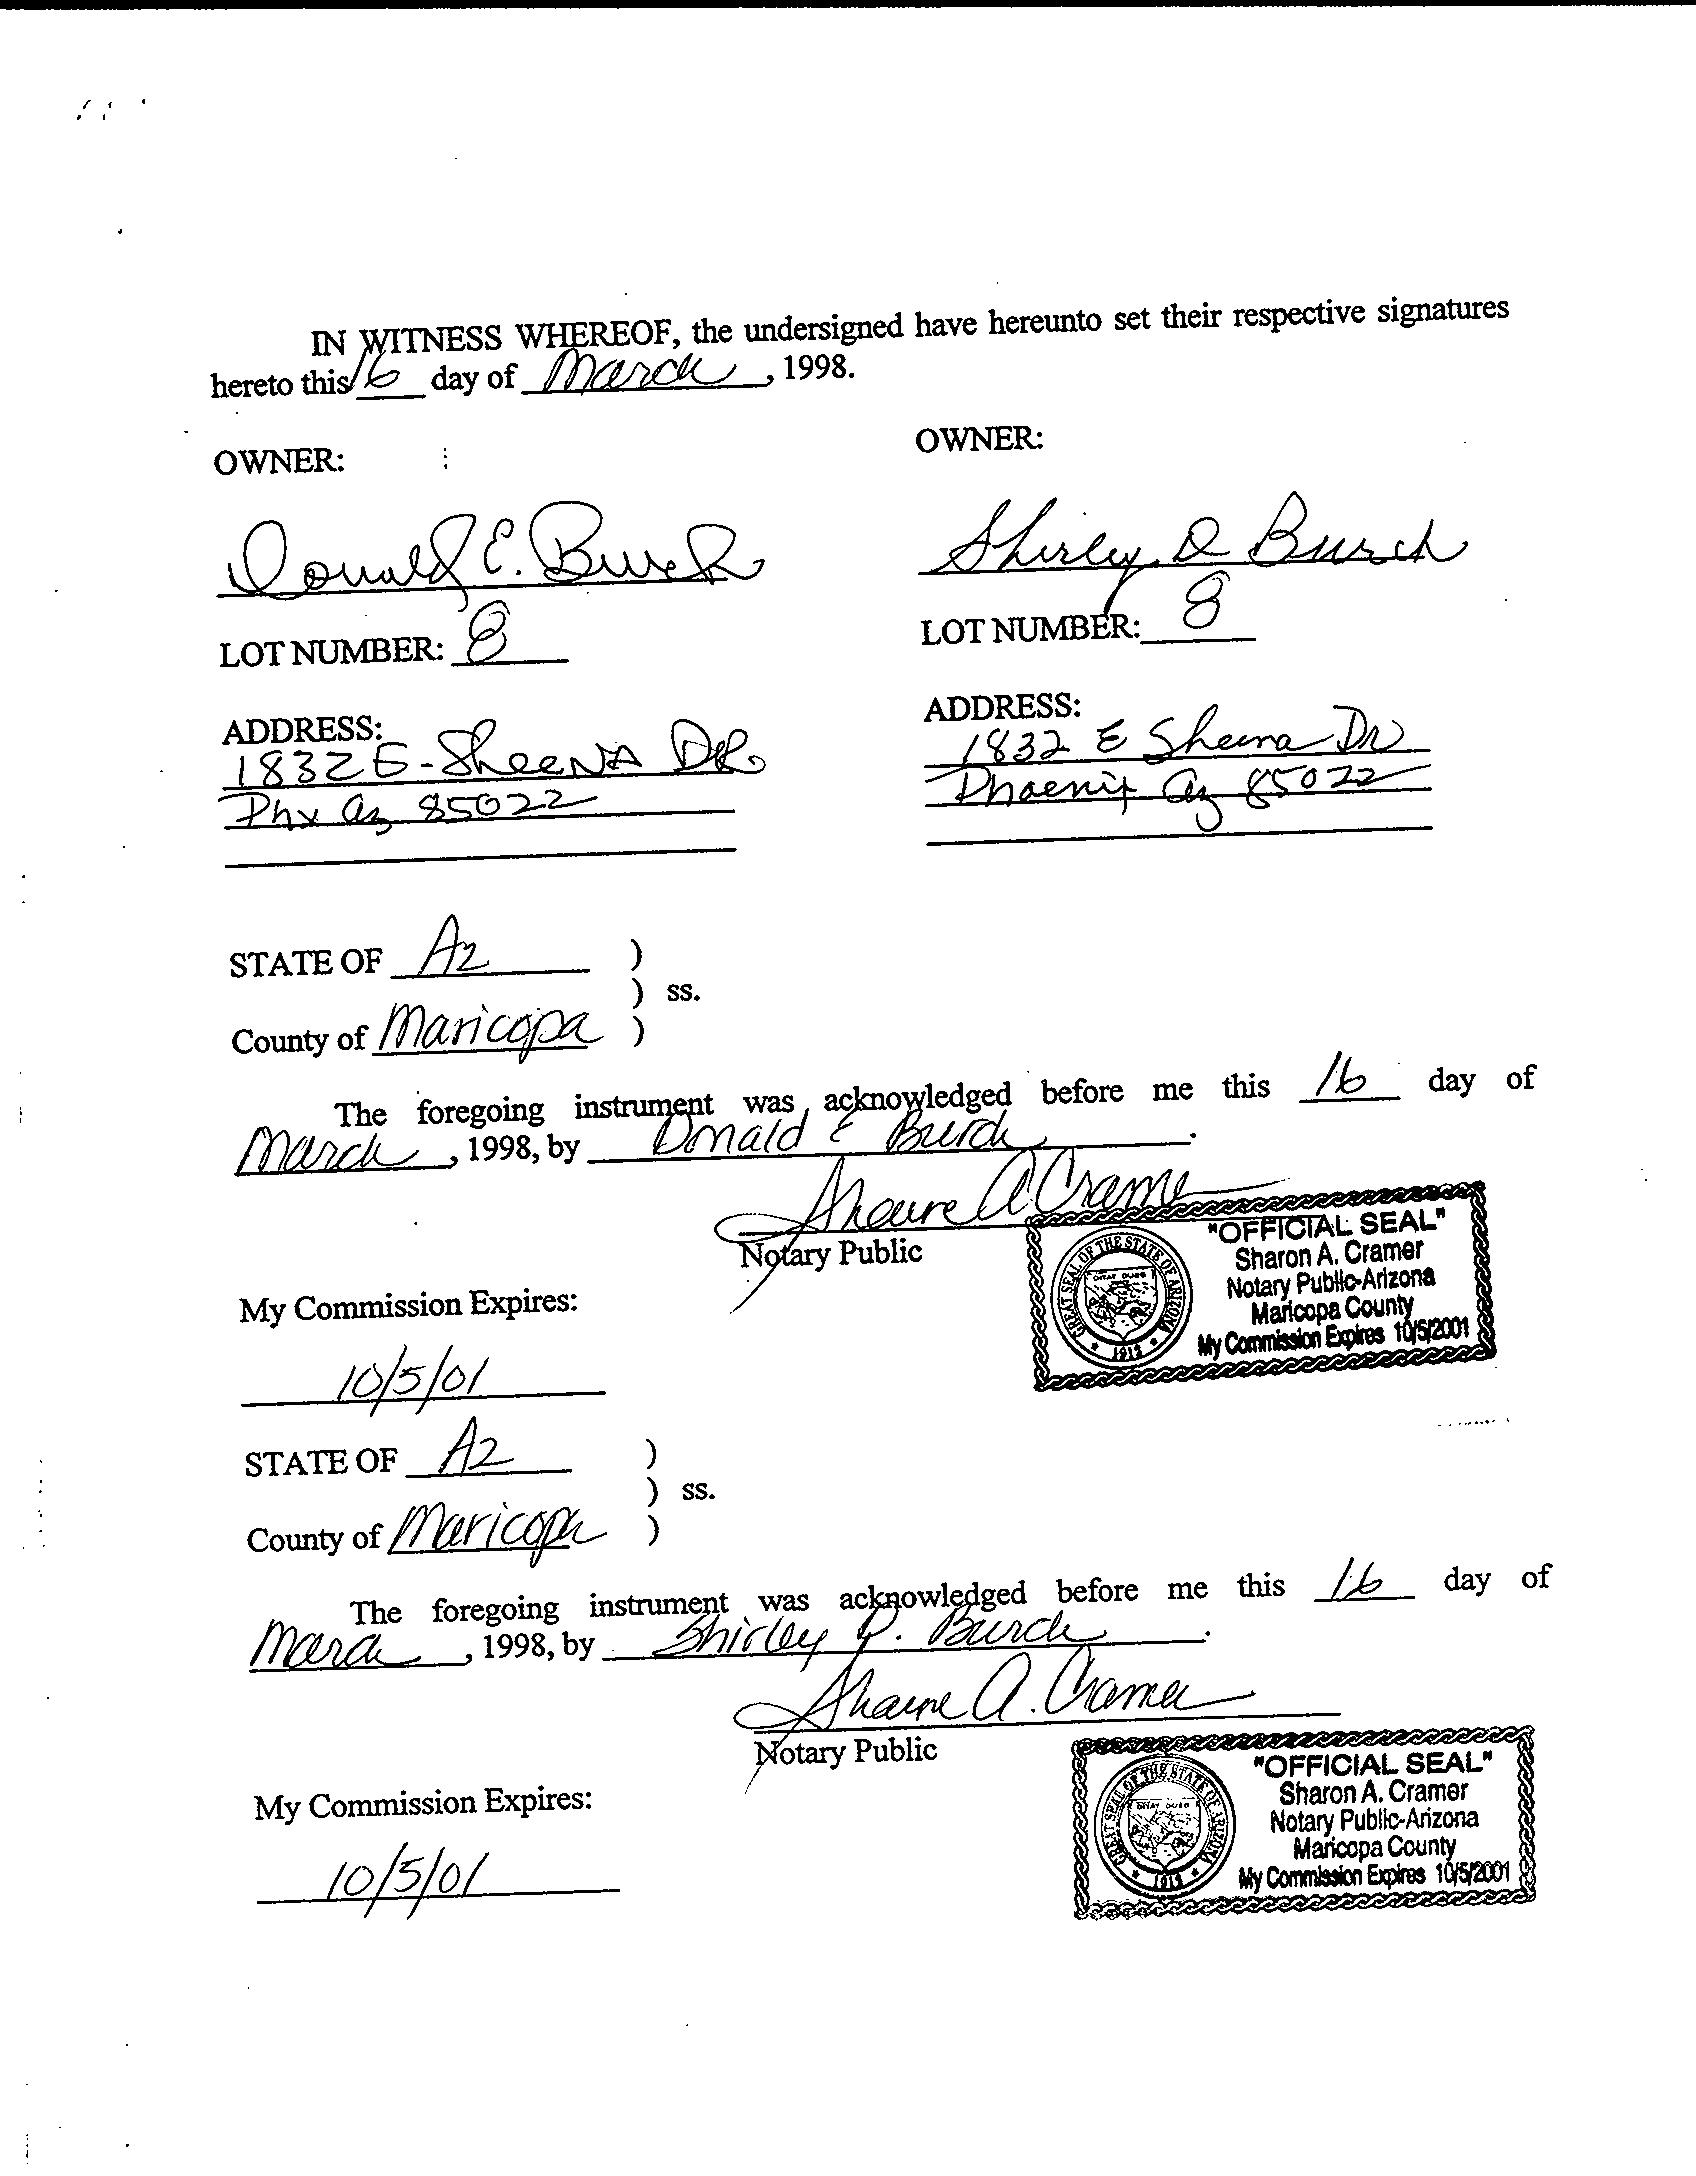 IN WITNESS WHEREOF, the undersigned have hereunto set their respective signatures
hereto this 16 day of March, 1998.
OWNER:
OWNER:
Donald E. Burch
Shirley D Burch
LOT NUMBER: 8
LOT NUMBER: 8
ADDRESS:
1832 E - Sheena DR.
Phx Az 85022
ADDRESS:
1832 E Sheena Dr
Phoenix Az 85022
STATE OF Az )
) ss.
County of Maricopa )
The foregoing instrument was acknowledged before me this 16 day of
March, 1998, by Donald E Burch.
Sharon A Cramer
Notary Public
"OFFICIAL SEAL"
Sharon A. Cramer
Notary Public-Arizona
Maricopa County
My Commission Expires 10/5/2001
GREAT SEAL OF THE STATE OF ARIZONA
1912
My Commission Expires:
10/5/01
STATE OF Az )
) ss.
County of Maricopa )
The foregoing instrument was acknowledged before me this 16 day of
March, 1998, by Shirley D. Burch.
Sharon A. Cramer
Notary Public
"OFFICIAL SEAL"
Sharon A. Cramer
Notary Public-Arizona
Maricopa County
My Commission Expires 10/5/2001
GREAT SEAL OF THE STATE OF ARIZONA
1912
My Commission Expires:
10/5/01